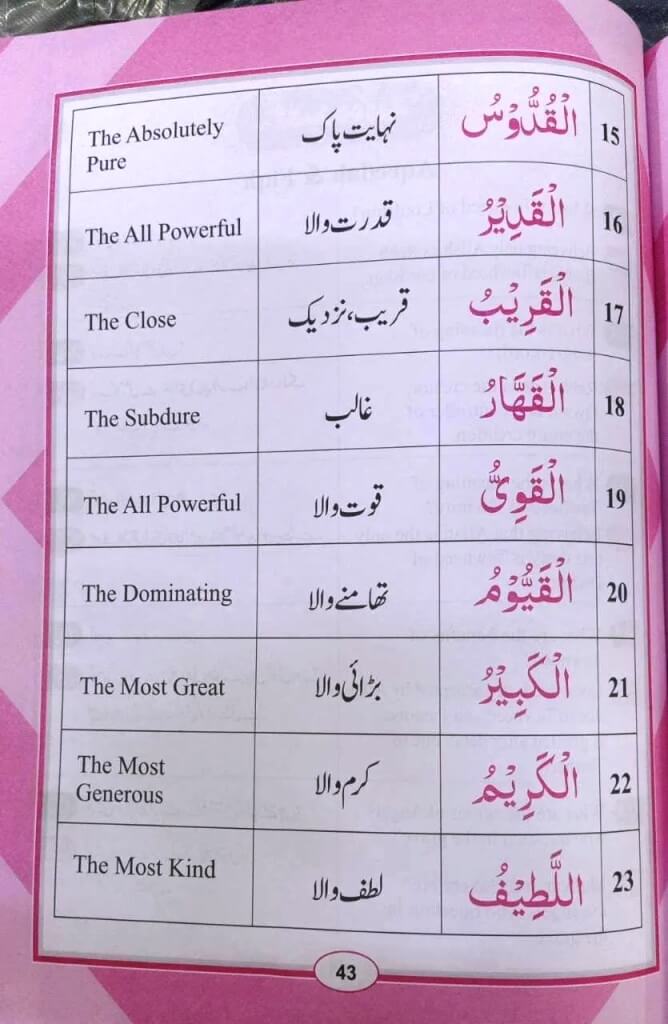 15 اَلْقُدُّوْسُ نہایت پاک The Absolutely
Pure
16 اَلْقَدِيْرُ قدرت والا The All Powerful
17 اَلْقَرِيْبُ قریب، نزدیک The Close
18 اَلْقَهَّارُ غالب The Subdure
19 اَلْقَوِىُّ قوت والا The All Powerful
20 اَلْقَيُّوْمُ تھامنے والا The Dominating
21 اَلْكَبِيْرُ بڑائی والا The Most Great
22 اَلْكَرِيْمُ کرم والا The Most
Generous
23 اَللَّطِيْفُ لطف والا The Most Kind
43